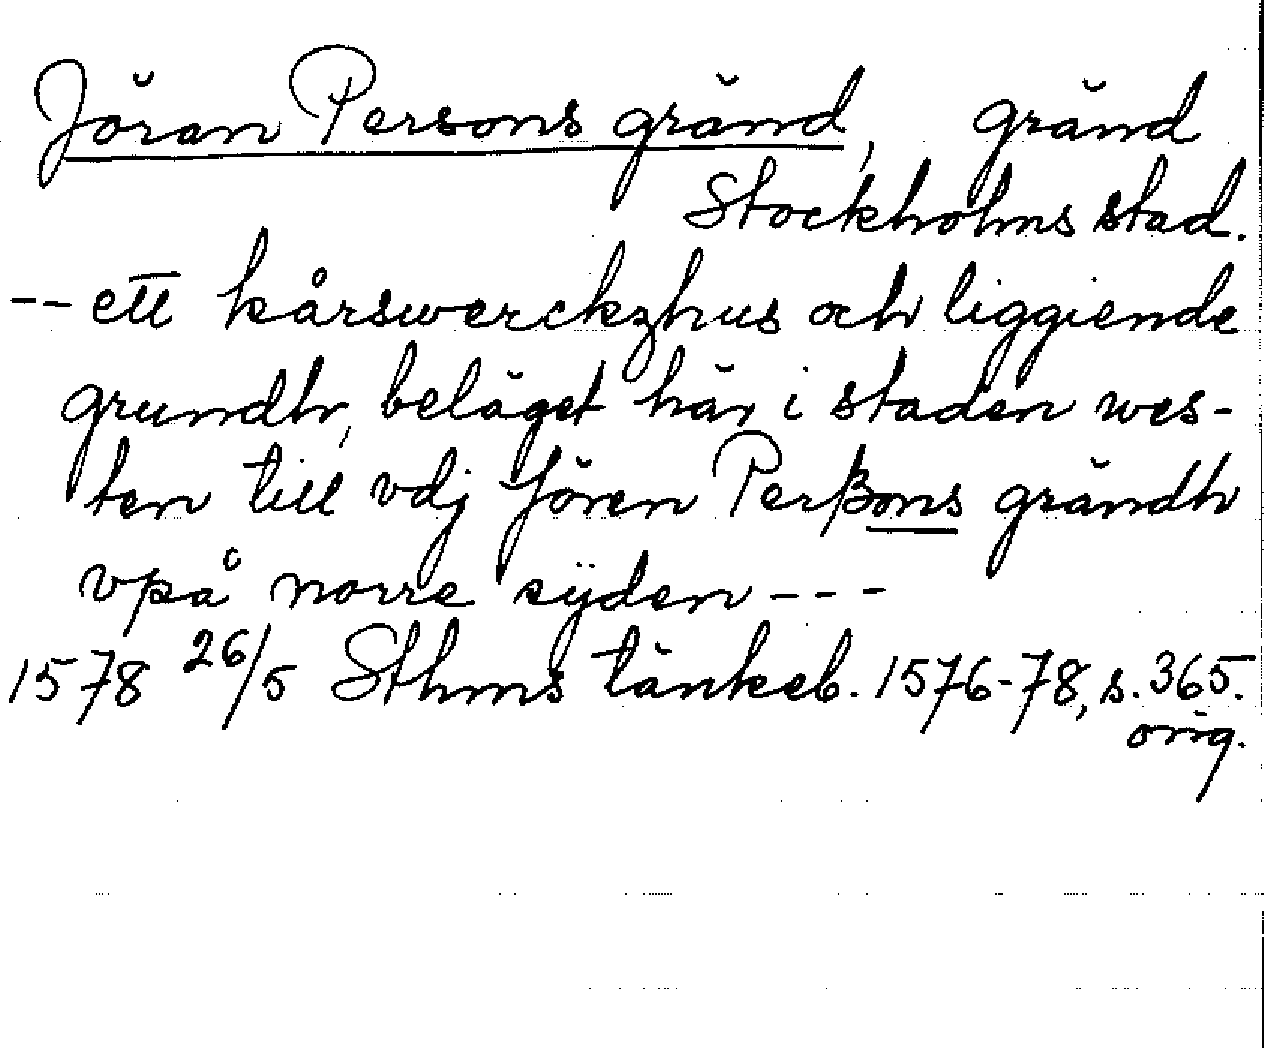 Jöran Persons gränd, gränd
Stockholms stad.
-- ett kårswerckzhus och liggiende
grundh, beläget här i staden wes-
ten till vdj Jören Perßons grändh
vpå norre sÿden ---
1578 26/5 Sthms tänkeb. 1576-78, s. 365.
orig.